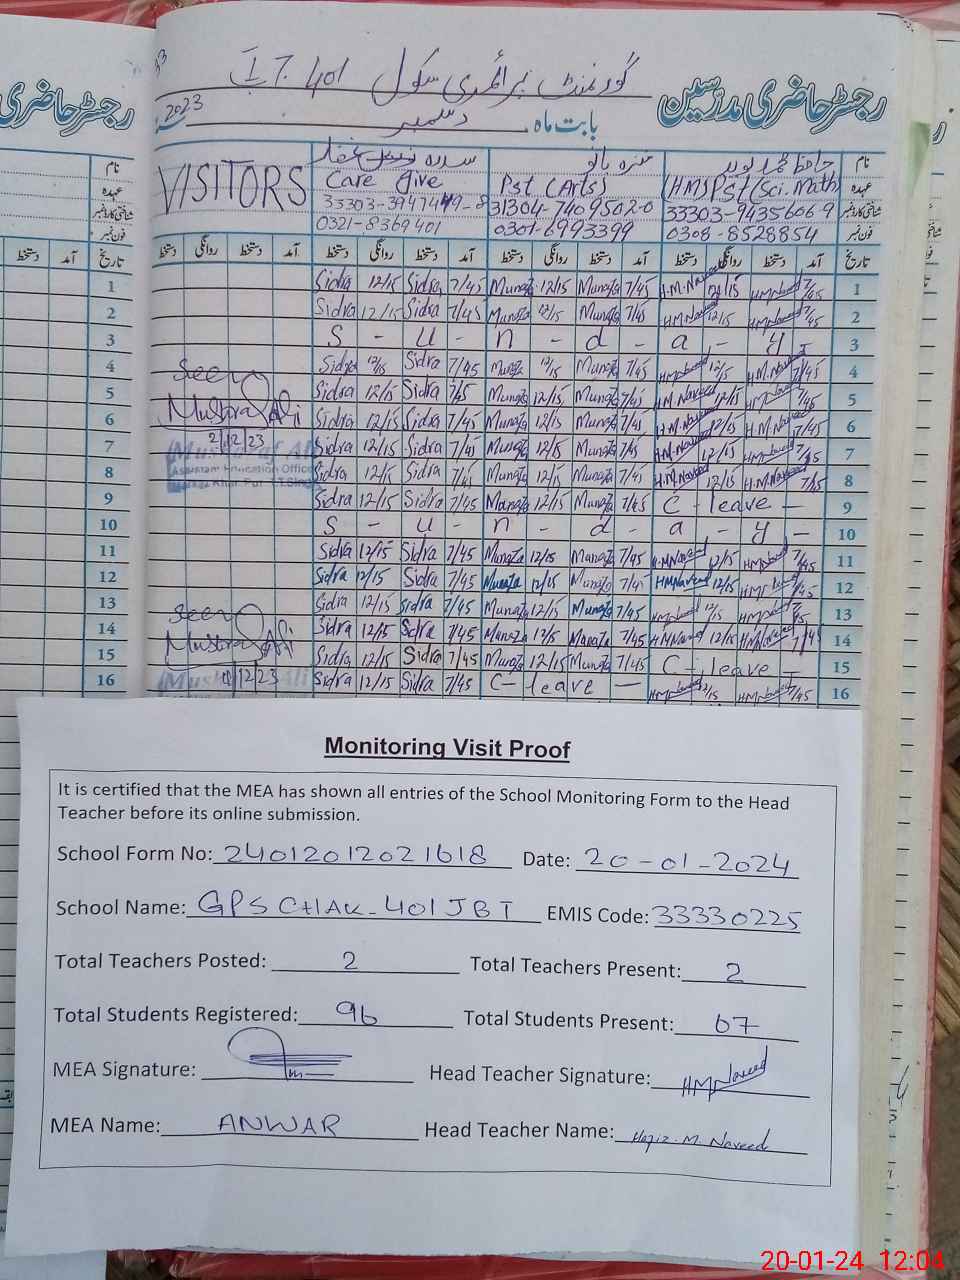 گورنمنٹ پرائمری سکول 401 ج ب
رجسٹر حاضری مدرسین
بابت ماہ دسمبر 2023
نام
عہدہ
شناختی کارڈ نمبر
فون نمبر
VISITORS
Care Give
33303-3947449-8
0321-8369401
Pst (Arts)
31304-7409502-0
0301-6993399
حافظ محمد نوید
(HM) Pst (Sci. Math)
33303-9435606-9
0308-8528854
تاریخ آمد دستخط روانگی دستخط آمد دستخط روانگی دستخط آمد دستخط روانگی دستخط آمد دستخط روانگی دستخط
1 Sidra 12/15 Sidra 7/45 Munaza 12/15 Munaza 7/45 H.M.Naveed 12/15 HM Naveed 7/45 1
2 Sidra 12/15 Sidra 7/45 Munaza 12/15 Munaza 7/45 HM.Naveed 12/15 HM Naveed 7/45 2
3 S - u - n - d - a - y - 3
4 Sidra 12/15 Sidra 7/45 Munaza 12/15 Munaza 7/45 HM Naveed 12/15 H.M.Naveed 7/45 4
Seen
5 Sidra 12/15 Sidra 7/45 Munaza 12/15 Munaza 7/45 HM Naveed 12/15 HM Naveed 7/45 5
Mushtaq Ali
6 Sidra 12/15 Sidra 7/45 Munaza 12/15 Munaza 7/45 H.M.Naveed 12/15 H.M.Naveed 7/45 6
2/12/23
7 Sidra 12/15 Sidra 7/45 Munaza 12/15 Munaza 7/45 HM Naveed 12/15 HM Naveed 7/45 7
Assistant Education Officer
8 Sidra 12/15 Sidra 7/45 Munaza 12/15 Munaza 7/45 H.M.Naveed 12/15 H.M.Naveed 7/45 8
9 Sidra 12/15 Sidra 7/45 Munaza 12/15 Munaza 7/45 C - leave - 9
10 S - u - n - d - a - y - 10
11 Sidra 12/15 Sidra 7/45 Munaza 12/15 Munaza 7/45 H.M Naveed 12/15 HM Naveed 7/45 11
12 Sidra 12/15 Sidra 7/45 Munaza 12/15 Munaza 7/45 HM Naveed 12/15 HM Naveed 7/45 12
13 Sidra 12/15 Sidra 7/45 Munaza 12/15 Munaza 7/45 HM Naveed 12/15 HM Naveed 7/45 13
Seen
14 Sidra 12/15 Sidra 7/45 Munaza 12/15 Munaza 7/45 HM Naveed 12/15 HM Naveed 7/45 14
15 Sidra 12/15 Sidra 7/45 Munaza 12/15 Munaza 7/45 C - leave - 15
16 Sidra 12/15 Sidra 7/45 C - leave - HM Naveed 12/15 HM Naveed 7/45 16
Monitoring Visit Proof
It is certified that the MEA has shown all entries of the School Monitoring Form to the Head
Teacher before its online submission.
School Form No: 24012012021618 Date: 20-01-2024
School Name: GPS CHAK-401 JBT EMIS Code: 33330225
Total Teachers Posted: 2 Total Teachers Present: 2
Total Students Registered: 96 Total Students Present: 67
MEA Signature: Head Teacher Signature: HM Naveed
MEA Name: ANWAR Head Teacher Name: Hafiz. M. Naveed
20-01-24 12:04